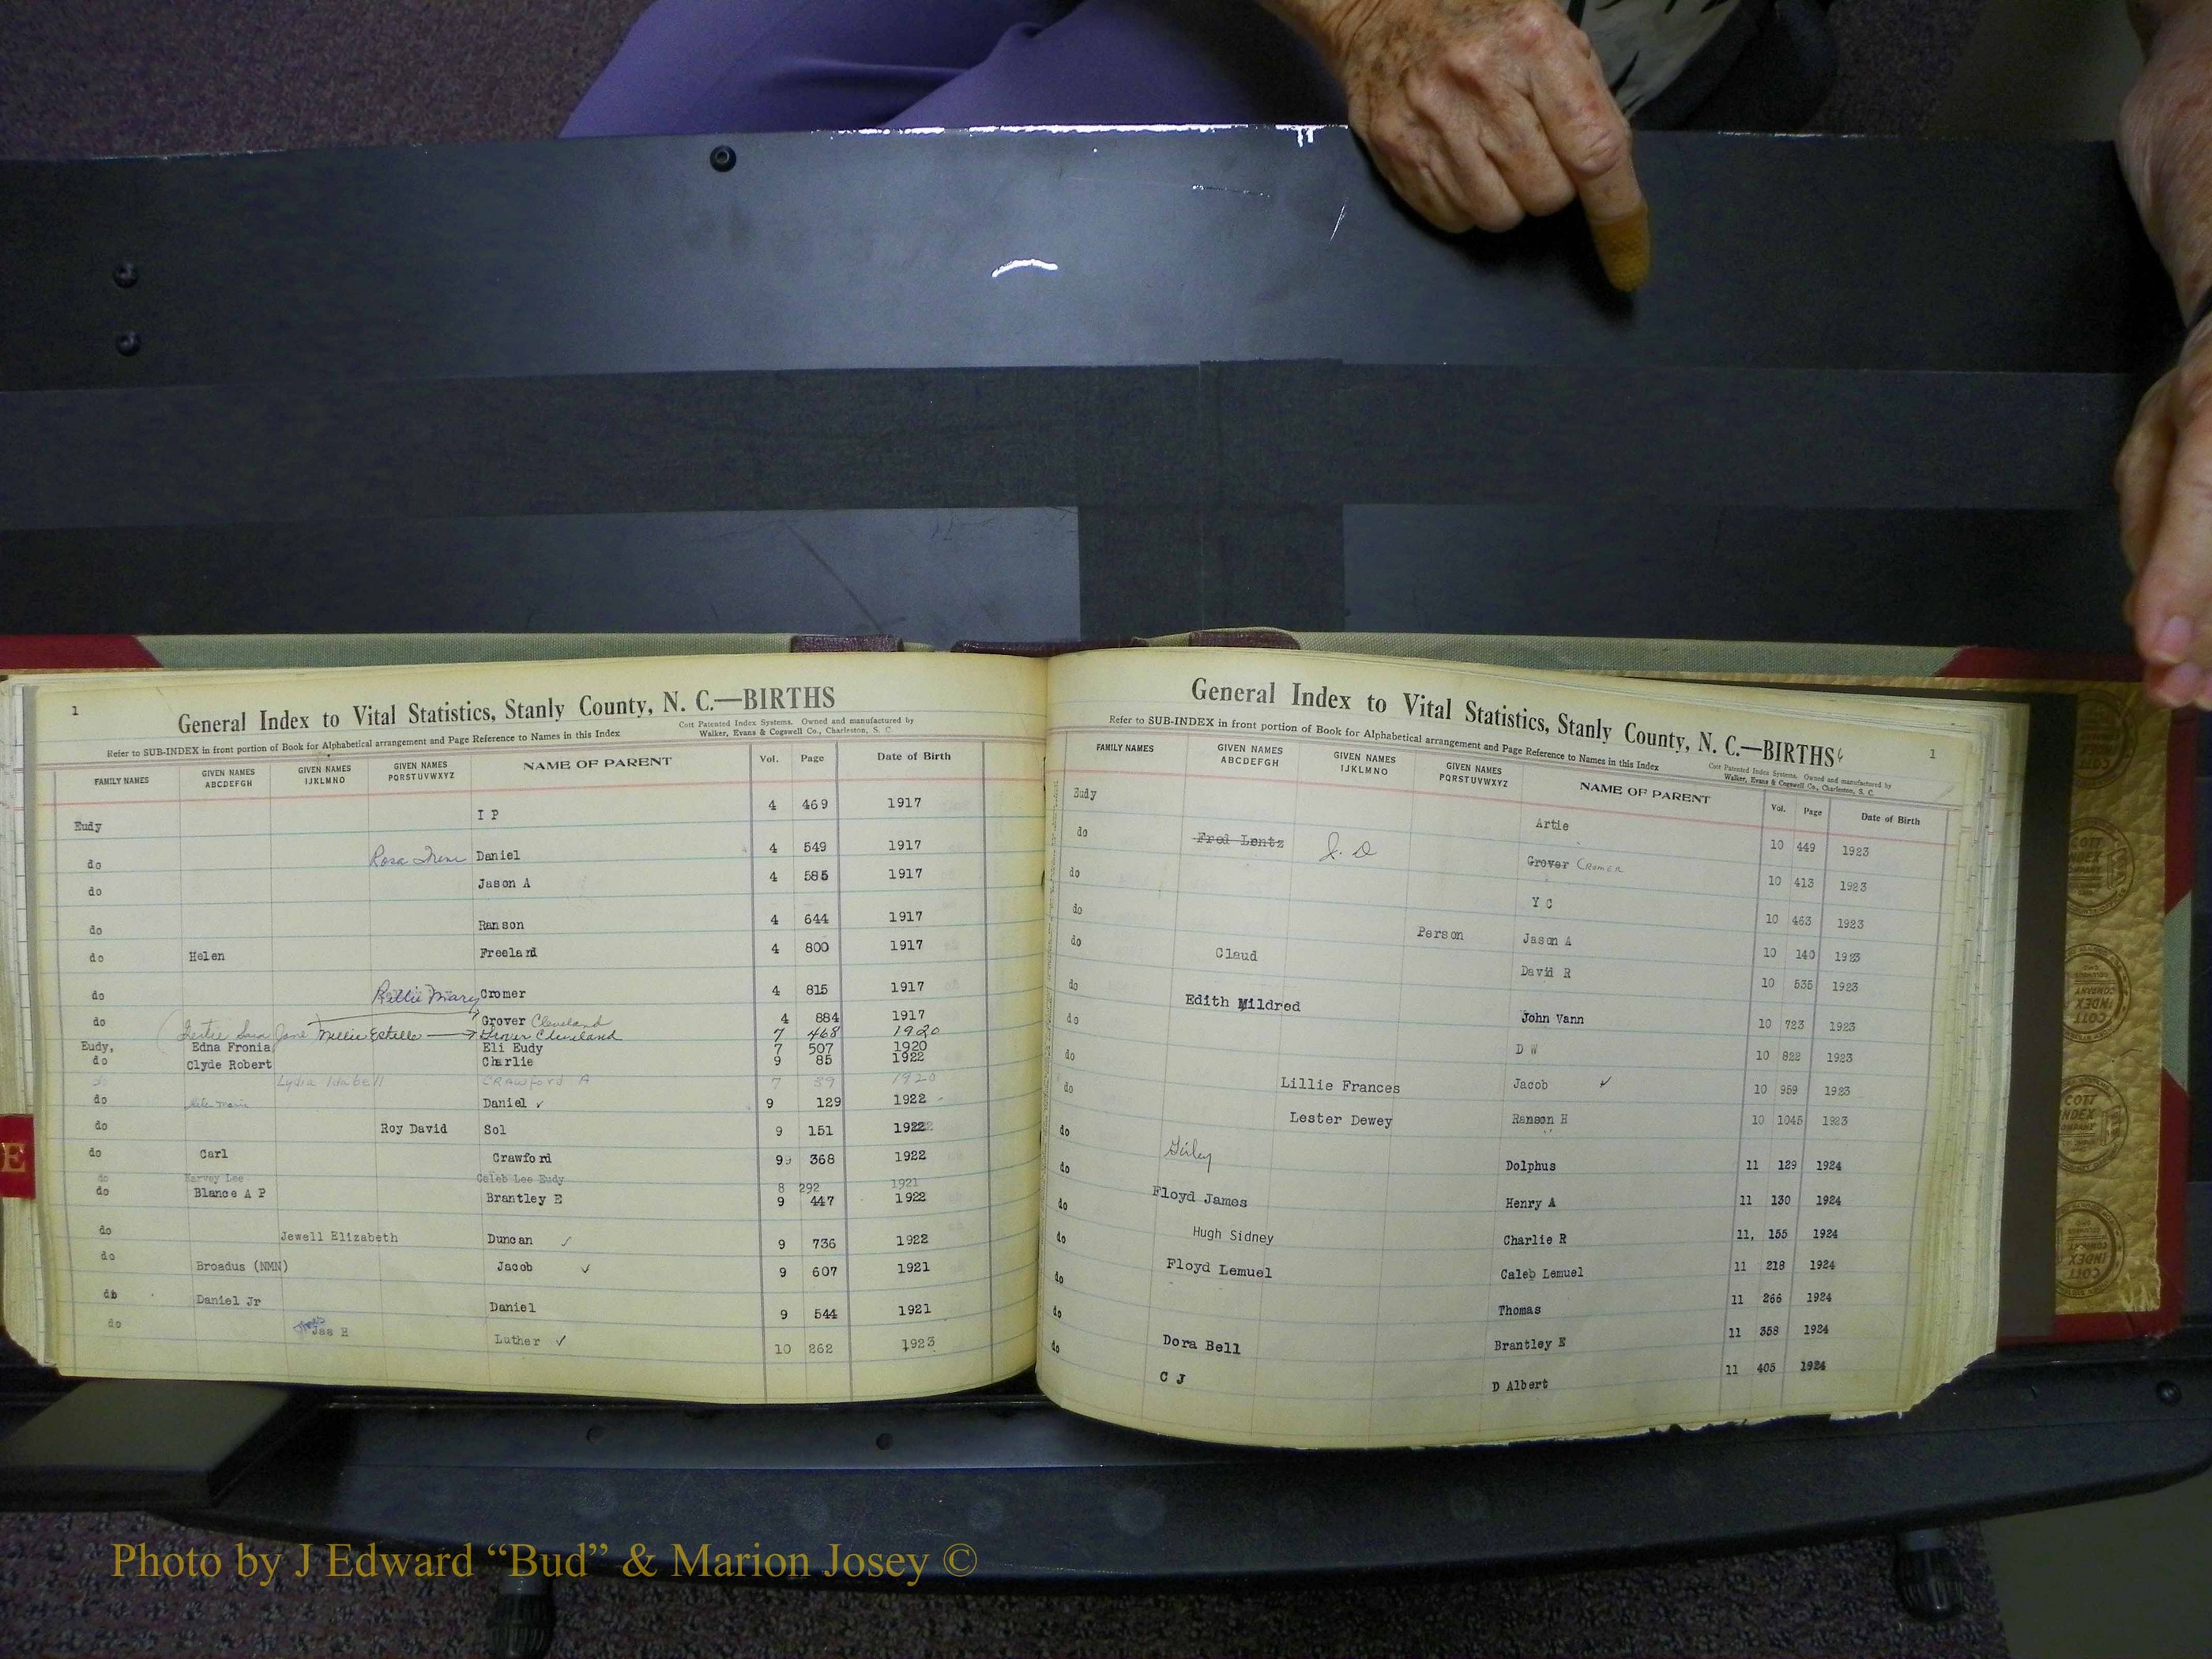 1
General Index to Vital Statistics, Stanly County, N. C.—BIRTHS
Cott Patented Index Systems. Owned and manufactured by
Walker, Evans & Cogswell Co., Charleston, S. C.
Refer to SUB-INDEX in front portion of Book for Alphabetical arrangement and Page Reference to Names in this Index
FAMILY NAMES GIVEN NAMES ABCDEFGH GIVEN NAMES IJKLMNO GIVEN NAMES PQRSTUVWXYZ NAME OF PARENT Vol. Page Date of Birth
Eudy I P 4 469 1917
do Rosa Irene Daniel 4 549 1917
do Jason A 4 585 1917
do Ranson 4 644 1917
do Helen Freeland 4 800 1917
do Mary Cromer 4 815 1917
do Grover Cleveland 4 884 1917
Sara Jane Millie Estelle Grover Cleveland 7 468 1920
Eudy, Edna Fronia Eli Eudy 7 507 1920
do Clyde Robert Charlie 9 85 1922
do Lydia Idabell Crawford A 7 39 1920
do Daniel ✓ 9 129 1922
do Roy David Sol 9 151 1922
do Carl Crawford 9 368 1922
do Harvey Lee Caleb Lee Eudy 8 292 1921
do Blance A P Brantley E 9 447 1922
do Jewell Elizabeth Duncan ✓ 9 736 1922
do Broadus (NMN) Jacob ✓ 9 607 1921
do Daniel Jr Daniel 9 544 1921
do Jas H Luther ✓ 10 262 1923
E
General Index to Vital Statistics, Stanly County, N. C.—BIRTHS
1
Refer to SUB-INDEX in front portion of Book for Alphabetical arrangement and Page Reference to Names in this Index
Cott Patented Index Systems. Owned and manufactured by
Walker, Evans & Cogswell Co., Charleston, S. C.
FAMILY NAMES GIVEN NAMES ABCDEFGH GIVEN NAMES IJKLMNO GIVEN NAMES PQRSTUVWXYZ NAME OF PARENT Vol. Page Date of Birth
Eudy Artie 10 449 1923
do Fred Lentz J. D Grover Cromer 10 413 1923
do Y C 10 463 1923
do Person Jason A 10 140 1923
do Claud David R 10 535 1923
do Edith Mildred John Vann 10 723 1923
do D W 10 822 1923
do Lillie Frances Jacob ✓ 10 959 1923
do Lester Dewey Ranson H 10 1045 1923
do Dolphus 11 129 1924
do Floyd James Henry A 11 130 1924
do Hugh Sidney Charlie R 11, 155 1924
do Floyd Lemuel Caleb Lemuel 11 218 1924
do Thomas 11 266 1924
do Dora Bell Brantley E 11 358 1924
do C J D Albert 11 405 1924
COTT
INDEX
COMPANY
Photo by J Edward “Bud” & Marion Josey ©